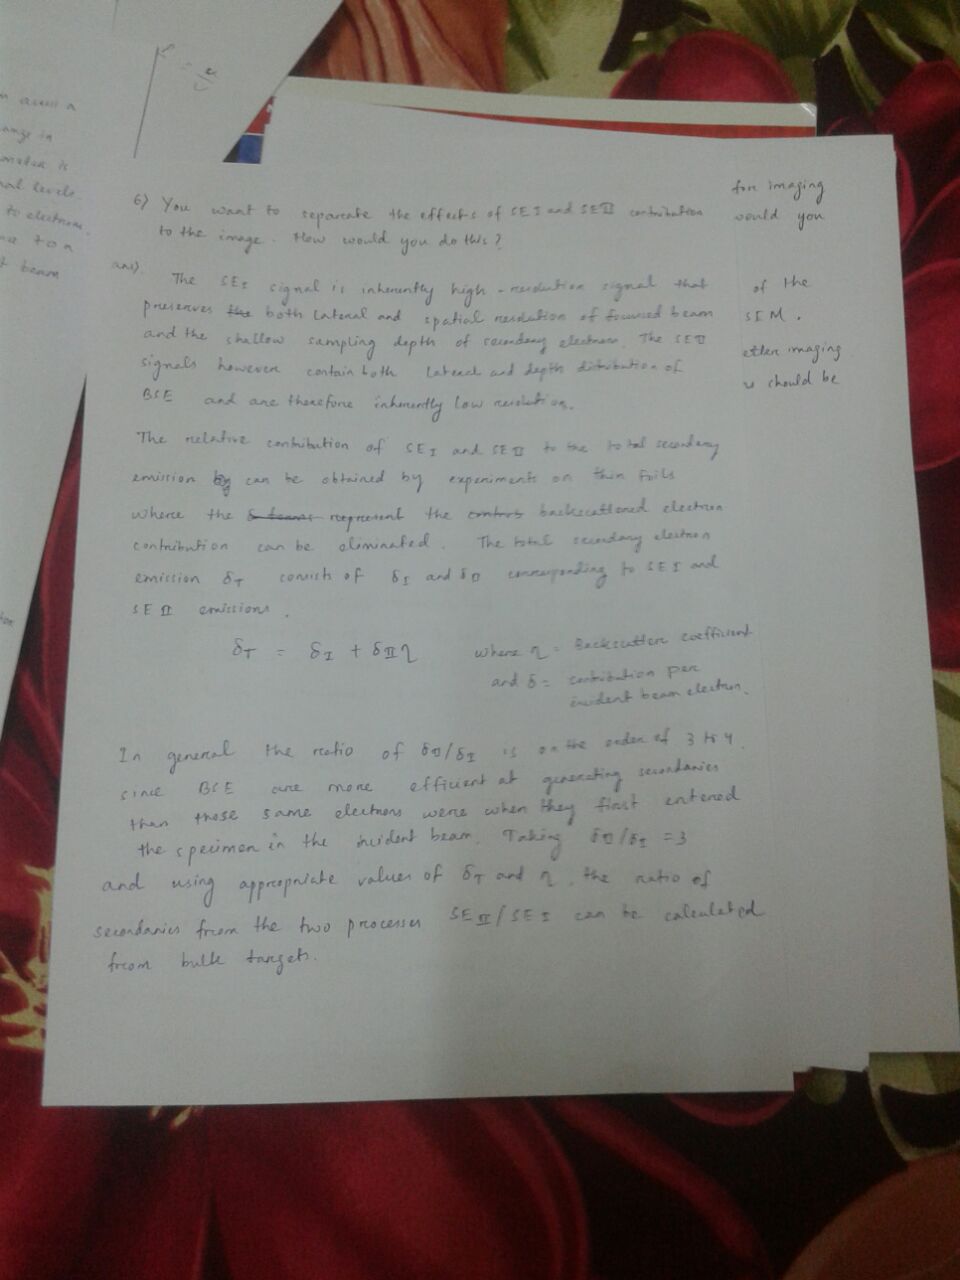 6) You want to separate the effects of SE I and SE II contribution
to the image. How would you do this?
ans).
The SE I signal is inherently high-resolution signal that
preserves the both Lateral and spatial resolution of focussed beam
and the shallow sampling depth of secondary electrons. The SE II
signals however contain both Lateral and depth distribution of
BSE and are therefore inherently low resolution.
The relative contribution of SE I and SE II to the total secondary
emission by can be obtained by experiments on thin foils
where the represent the backscattered electron
contribution can be eliminated. The total secondary electron
emission δT consists of δI and δII corresponding to SE I and
SE II emissions.
δT = δI + δII η
where η = Backscatter coefficient
and δ = contribution per
incident beam electron.
In general the ratio of δII/δI is on the order of 3 to 4.
since BSE are more efficient at generating secondaries
than those same electrons were when they first entered
the specimen in the incident beam. Taking δII/δI = 3
and using appropriate values of δT and η, the ratio of
secondaries from the two processes SE II/SE I can be calculated
from bulk targets.
for imaging
would you
of the
SEM.
imaging
should be
a
in
is
levels
to electrons.
to a
beam